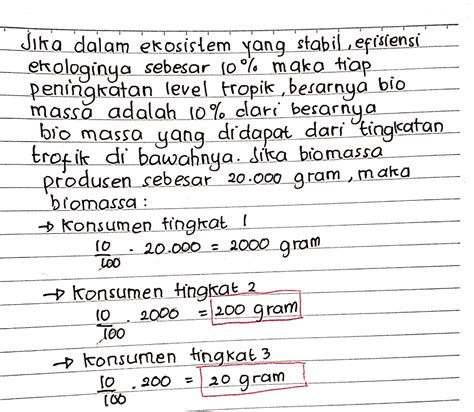 Jika dalam ekosistem yang stabil, efisiensi
ekologinya sebesar 10% maka tiap
peningkatan level tropik, besarnya bio
massa adalah 10% dari besarnya
bio massa yang didapat dari tingkatan
trofik di bawahnya. Jika biomassa
produsen sebesar 20.000 gram, maka
biomassa :
→ Konsumen tingkat 1
10/100 . 20.000 = 2000 gram
→ Konsumen tingkat 2
10/100 . 2000 = 200 gram
→ Konsumen tingkat 3
10/100 . 200 = 20 gram